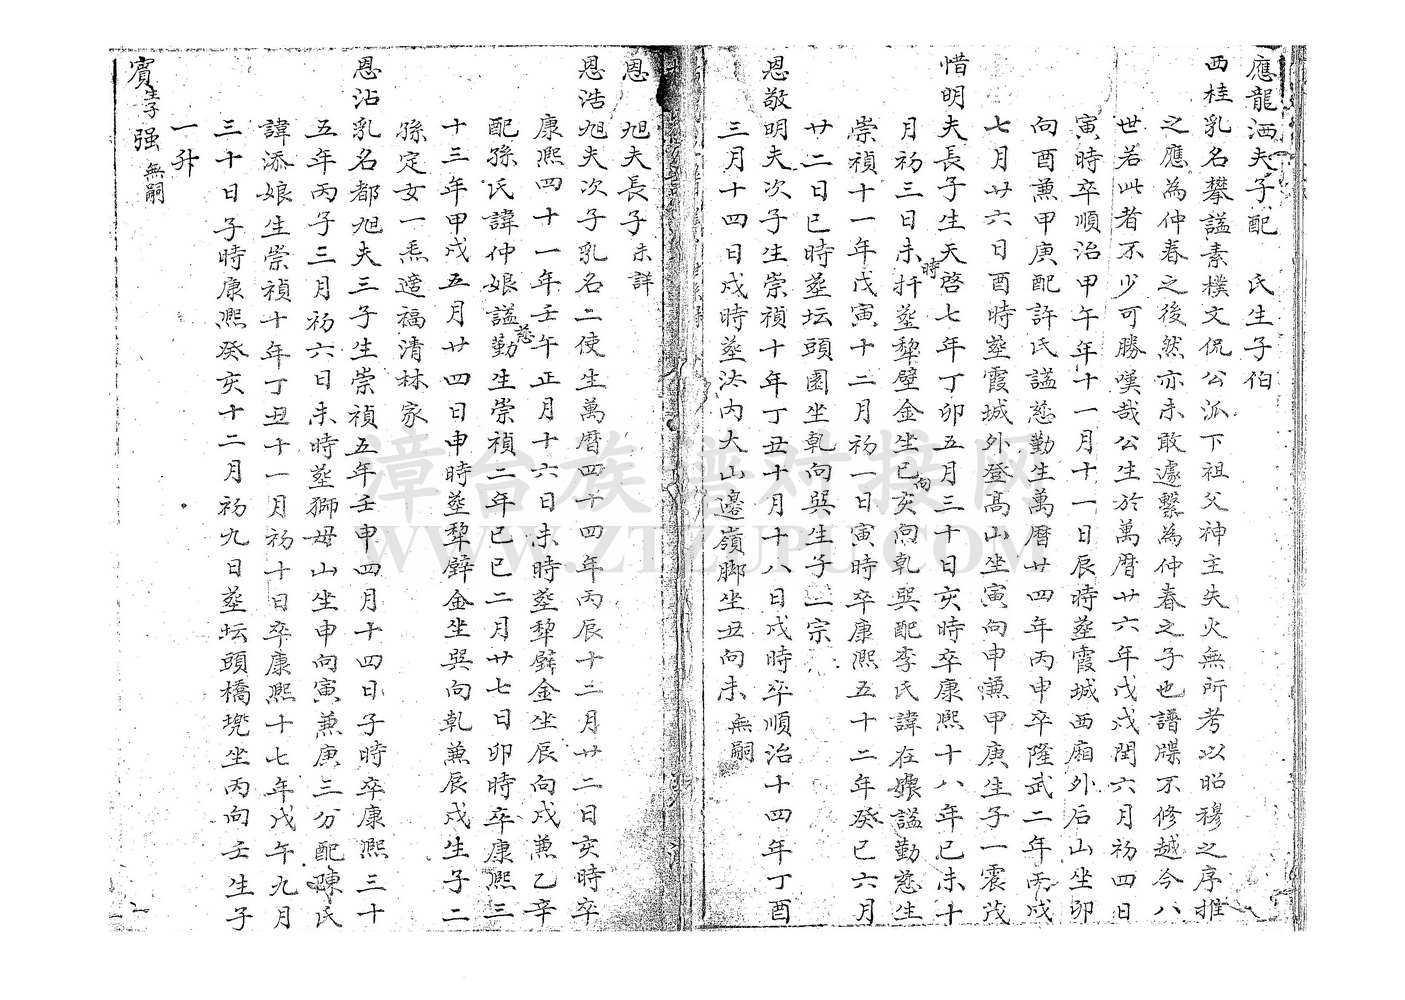 應龍洒夫子配　氏生子伯
西桂乳名攀謚素樸文侃公派下祖父神主失火無所考以昭穆之序推
之應為仲春之後然亦未敢遽繫為仲春之子也譜牒不修越今八
世若此者不少可勝嘆哉公生於萬曆廿六年戊戌閏六月初四日
寅時卒順治甲午年十一月十一日辰時塟霞城西廂外后山坐卯
向酉兼甲庚配許氏謚慈勤生萬曆廿四年丙申卒隆武二年丙戌
七月廿六日酉時塟霞城外登高山坐寅向申兼甲庚生子一震茂
惜明夫長子生天啓七年丁卯五月三十日亥時卒康熙十八年己未十
月初三日未時扦塟犁壁金坐巳向亥向乾巽配李氏諱在孃謚勤慈生
崇禎十一年戊寅十二月初一日寅時卒康熙五十二年癸巳六月
廿二日巳時塟坛頭園坐乾向巽生子一宗
恩敬明夫次子生崇禎十年丁丑十月十八日戌時卒順治十四年丁酉
三月十四日戌時塟汰内大山邊嶺脚坐丑向未無嗣
恩　旭夫長子未詳
恩浩旭夫次子乳名二使生萬曆四十四年丙辰十二月廿二日亥時卒
康熙四十一年壬午正月十六日未時塟犁壁金坐辰向戌兼乙辛
配孫氏諱仲娘謚慈勤生崇禎二年己巳二月廿七日卯時卒康熙三
十三年甲戌五月廿四日申時塟犁壁金坐巽向乾兼辰戌生子二
孫定女一烝適福清林家
恩沾乳名都旭夫三子生崇禎五年壬申四月十四日子時卒康熙三十
五年丙子三月初六日未時塟獅母山坐申向寅兼庚三分配陳氏
諱添娘生崇禎十年丁丑十一月初十日卒康熙十七年戊午九月
三十日子時康熙癸亥十二月初九日塟坛頭橋兠坐丙向壬生子
一升
賓生子強無嗣
漳台族譜对接网
WWW.ZTZUPU.COM